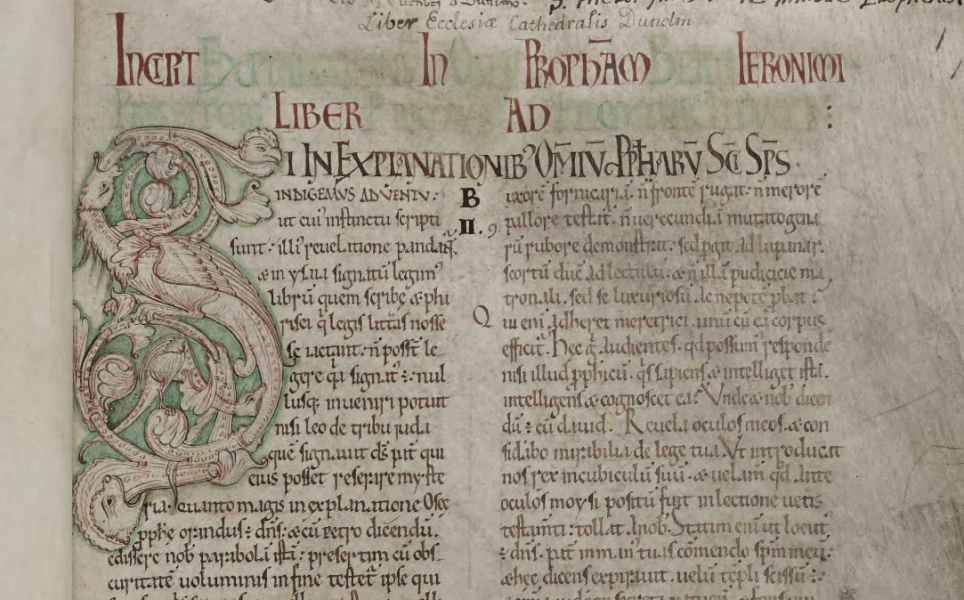 Liber Ecclesiæ Cathedralis Dunelm
INCIPIT IN PROPHAM IERONIMI
LIBER AD
SI IN EXPLANATIONIB' OMIU PPHARU SCI SPS
INDIGEMUS ADVENTU .
ut cui' instinctu scripti
sunt . illi' reuelatione pandat̃.
& in ysaia signatũ legim'
librũ quem scribę & pha
risei q̃ legis litt̃as nosse
se iactant . ñ posst̃ le
gere q̃a signat' ÷ nul
lusq; inueniri potuit
nisi leo de tribu iuda
quẽ signauit ds̃ pat̃ qui
eius posset reserare myste
ria . Quanto magis in explanatione Osee
pphę orandus ÷ dñs . & cũ petro dicendũ .
edissere nob' parabolã istã : presertim cũ obs
curitatẽ uoluminis in fine testet̃ ipse qui
B
II . 9
uxorẽ fornicariã . ñ frontẽ rugat . ñ merorẽ
pallore testat̃ . ñ uerecundiã mutato gena
rũ rubore demonstrat . sed pgit ad lupanar .
scortũ ducit ad lectulũ . & ñ illã pudicicię ma
tronali . sed se luxuriosũ ac nepotẽ pbat :
Qui enĩ adheret meretrici . unũ cũ ea corpus
efficit̃ . Hęc q̃ audientes . qd possum' responde
nisi illud pphicũ . q̃s sapiens & intelliget ista .
intelligens & cognoscet ea . Unde & nob' dicen
dũ ÷ cũ dauid . Reuela oculos meos . & con
siderabo mirabilia de lege tua . Ut introducat
nos rex in cubiculũ suũ . & uelam̃ qd ante
oculos moysi positũ fuit in lectione uet̃is
testamti : tollat a nob' . Statim enĩ ut locut'
÷ dñs . pat̃ in man' tuas cõmendo spm̃ meũ :
& hęc dicens expirauit . uelũ tẽpli scissũ ÷